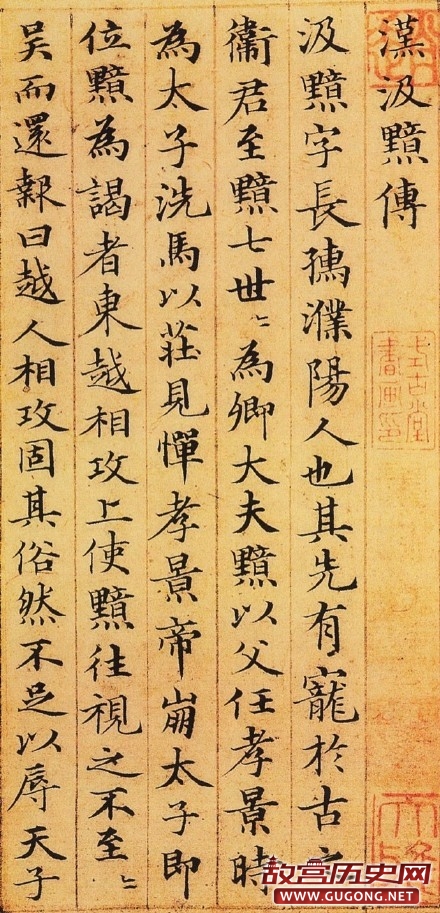 漢汲黯傳
汲黯字長孺濮陽人也其先有寵於古之
衞君至黯七世〻為卿大夫黯以父任孝景時
為太子洗馬以莊見憚孝景帝崩太子即
位黯為謁者東越相攻上使黯往視之不至〻
吳而還報曰越人相攻固其俗然不足以辱天子
故宫历史网
WWW.GUGONG.NET